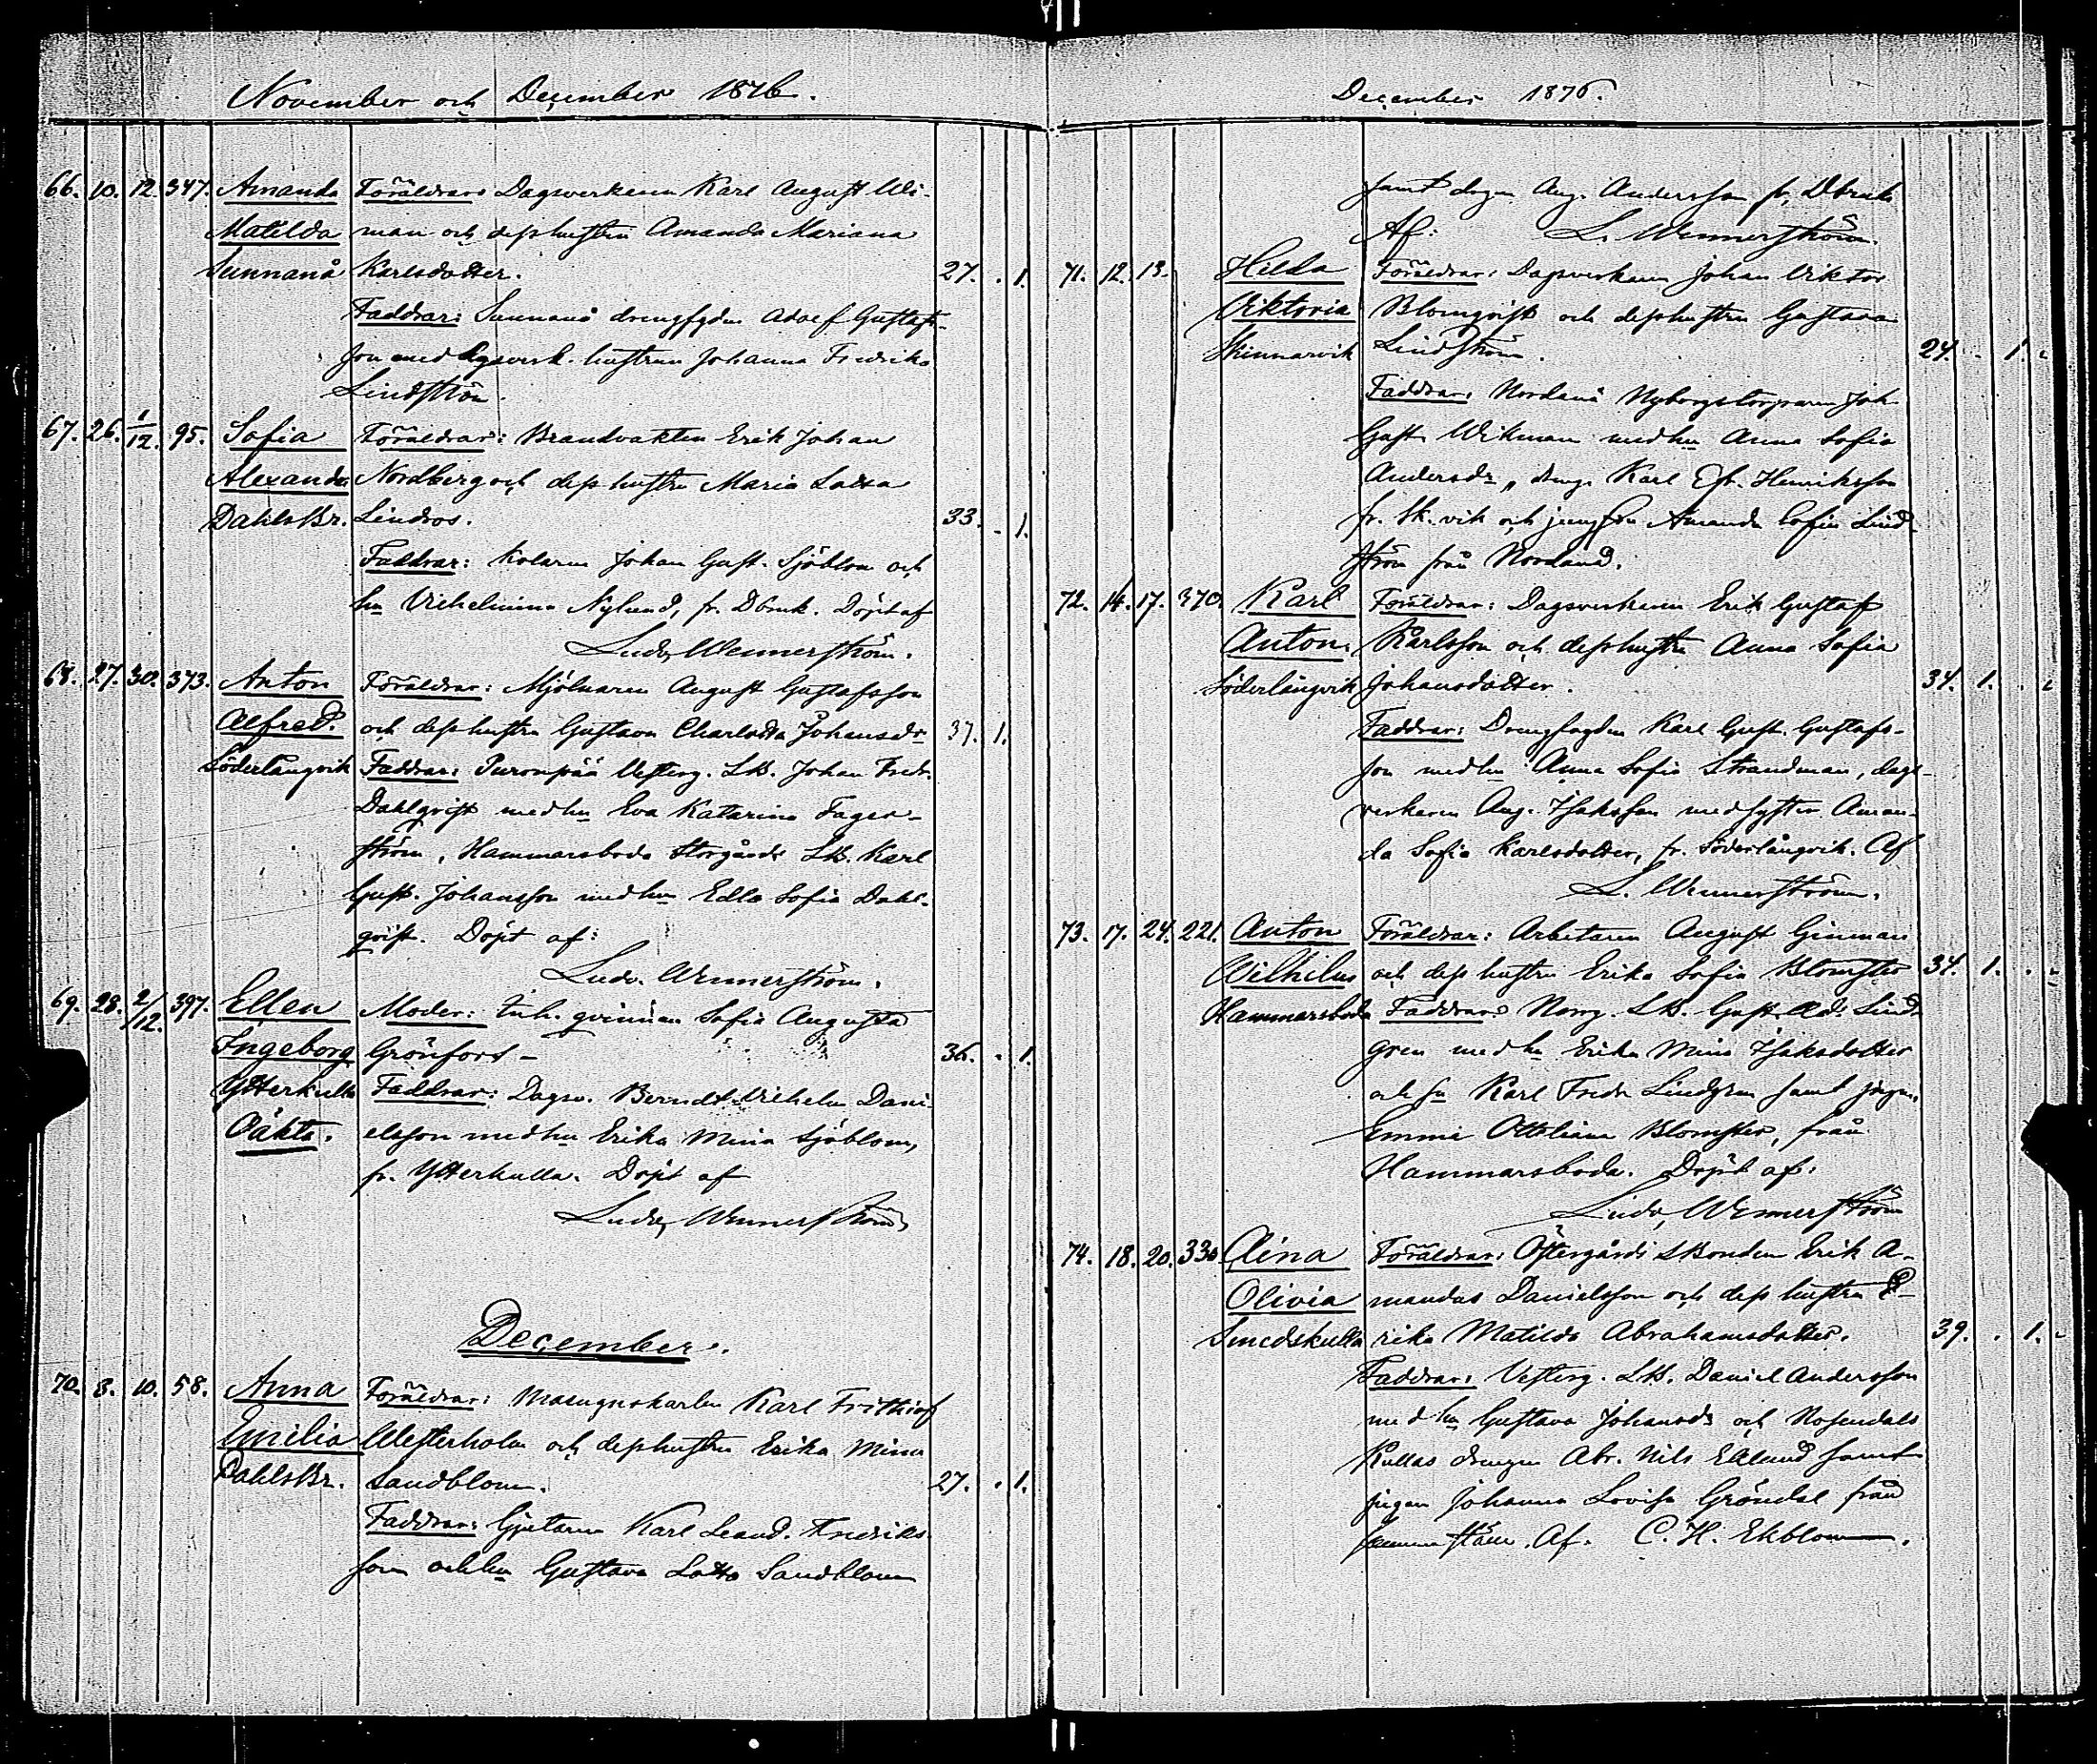 November och December 1876.
66. 10. 12. 347. Amanda Föräldrar: Dagsverkaren Karl August Wi-
Matilda man och dess hustru Amanda Mariana
Sunnanå Karlsdotter. 27. . 1.
Faddrar: Sunnanå drengfogden Adolf Gustafs-
son med dagsverk. hustrun Johanna Fredrika
Lindström.
67. 26. 1/12. 95. Sofia Föräldrar: Brandvakten Erik Johan
Alexandra Nordberg och dess hustru Maria Lovisa
DahlsBr. Lindros. 33. - 1.
Faddrar: Kolaren Johan Gust. Sjöblom och
hu Vilhelmina Nylund, fr. Dbruk. Döpt af
Ludv. Wennerström.
68. 27. 30. 373. Anton Föräldrar: Mjölnaren August Gustafsson
Alfred. och dess hustru Gustava Charlotta Johansdr 37. 1.
Söderlångvik Faddrar: Puronpää Vesterg. LB. Johan Fredr.
Dahlqvist med hu Eva Katarina Fager-
ström, Hammarsboda Storgårds LB. Karl
Gust. Johansson med hu Edla Sofia Dahl-
qvist. Döpt af:
Ludv. Wennerström.
69. 28. 2/12. 397. Ellen Moder: Inh. qvinnan Sofia Augusta
Ingeborg Grönfors - 36. . 1.
Ytterkulla Faddrar: Dagsv. Berndt Vilhelm Dani-
Oäkta. elsson med hu Erika Mina Sjöblom,
fr. Ytterkulla. Döpt af
Ludv. Wennerström
December.
70. 8. 10. 58. Anna Föräldrar: Masugnskarlen Karl Frithiof
Emilia Westerholm och dess hustru Erika Mina
DahlsBr. Sandblom. 27. . 1.
Faddrar: Gjutaren Karl Leand. Fredriks-
son och hu Gustava Lotta Sandblom
December 1876.
samt drgn Aug. Andersson fr. Dbruk
Af: L. Wennerström.
71. 12. 13. Hilda Föräldrar: Dagsverkaren Johan Viktor
Viktoria Blomqvist och dess hustru Gustava
Skinnarvik Lindström. 24. . 1.
Faddrar: Nordanå Nyborgstorparen Joh.
Gust. Wikman med hu Anna Sofia
Andersdr, dreng. Karl Efr. Henriksson
fr. Sk.vik och jungfru Amanda Sofia Lind-
ström från Nordanå.
72. 14. 17. 370. Karl Föräldrar: Dagsverkaren Erik Gustaf
Anton. Karlsson och dess hustru Anna Sofia
Söderlångvik Johansdotter. 34. 1. .
Faddrar: Drengfogden Karl Gust. Gustafs-
son med hu Anna Sofia Strandman, dags-
verkaren Aug. Isaksson med syster Aman-
da Sofia Karlsdotter, fr. Söderlångvik. Af
L. Wennerström.
73. 17. 24. 221. Anton Föräldrar: Arbetaren August Ginman
Wilhilm och dess hustru Erika Sofia Blomster 34. 1. .
Hammarsboda Faddrar: Norrg. LB. Gust. Ad. Lind-
gren med hu Erika Mina Isaksdotter
och sn Karl Fredr. Lindgren samt pign.
Emma Ottiliana Blomster, från
Hammarsboda. Döpt af:
Ludv. Wennerström
74. 18. 20. 330. Aina Föräldrar: Östergårds LBonden Erik A-
Olivia mandus Danielsson och dess hustru E-
Smedskulla rika Matilda Abrahamsdotter. 39. . 1.
Faddrar: Vesterg. LB. Daniel Andersson
med hu Gustava Johansdr och Rosendals
Kullas drengen Abr. Nils Eklund samt
pigan Johanna Lovisa Gröndal från
samma ställe. Af. C. H. Ekblom.